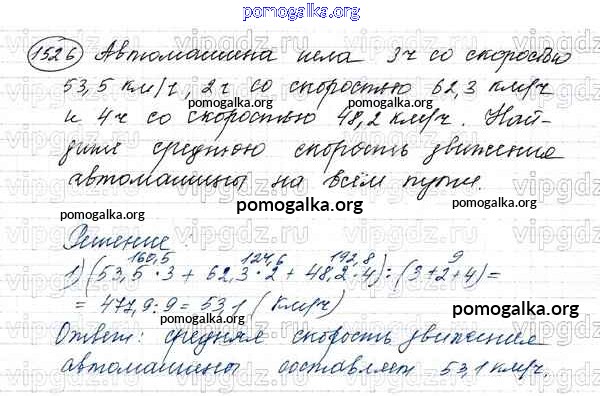 pomogalka.org
1526 Автомашина шла 3ч со скоростью
53,5 км/ч, 2ч со скоростью 62,3 км/ч
pomogalka.org pomogalka.org
и 4ч со скоростью 48,2 км/ч. Най-
дите среднюю скорость движения
автомашины на всём пути.
pomogalka.org pomogalka.org pomogalka.org
Решение:
160,5 124,6 192,8 9
1) (53,5·3 + 62,3·2 + 48,2·4) : (3+2+4) =
= 477,9 : 9 = 53,1 (км/ч)
pomogalka.org
Ответ: средняя скорость движения
pomogalka.org
автомашины составляет 53,1 км/ч.